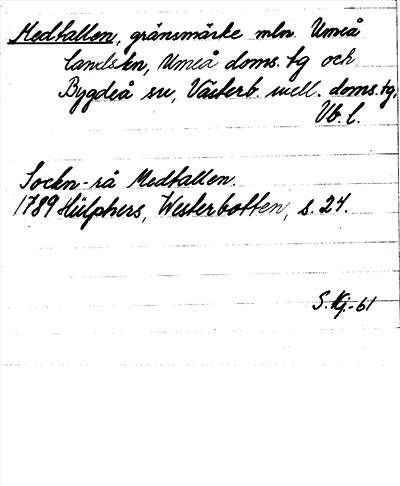 Medtallen, gränsmärke mln Umeå
landskn, Umeå doms. tg och
Bygdeå sn, Västerb. mell. doms. tg,
Vb. l.
Sockn-rå Medtallen.
1789 Hülphers, Westerbotten, s. 24.
S. Hj.-61